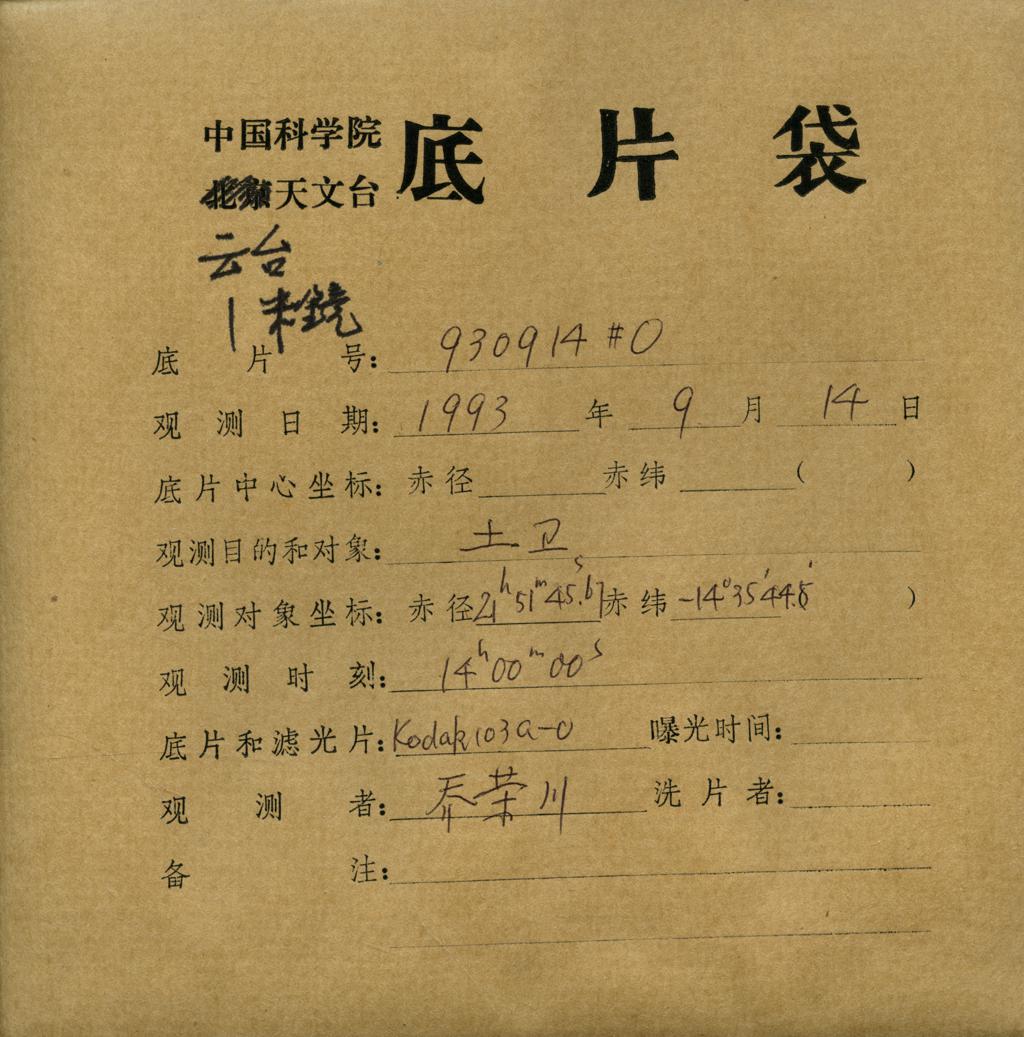 中国科学院 底片袋
北京天文台
云台
1米镜
底片号: 930914 #0
观测日期: 1993 年 9 月 14 日
底片中心坐标: 赤径 赤纬 ( )
观测目的和对象: 土卫
观测对象坐标: 赤径 21h51m45s.67 赤纬 -14°35′44.8″ )
观测时刻: 14h00m00s
底片和滤光片: Kodak 103a-O 曝光时间:
观测者: 乔荣川 洗片者:
备注: